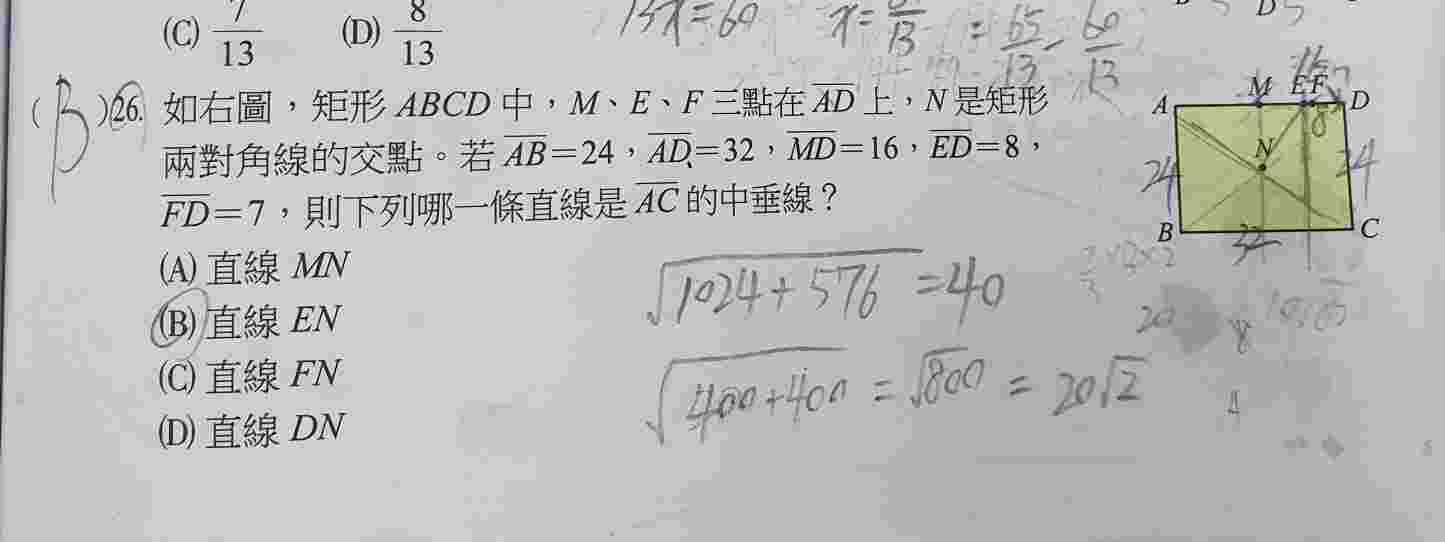 (C) 7/13 (D) 8/13
13x=60 x= = 65/13 - 60/13
(B)26. 如右圖，矩形 ABCD 中，M、E、F 三點在 AD 上，N 是矩形
兩對角線的交點。若 AB=24，AD=32，MD=16，ED=8，
FD=7，則下列哪一條直線是 AC 的中垂線？
(A) 直線 MN
(B) 直線 EN
(C) 直線 FN
(D) 直線 DN
A M E F D
8
N
24 24
B 32 C
√1024+576 =40
√400+400 = √800 = 20√2
20 8